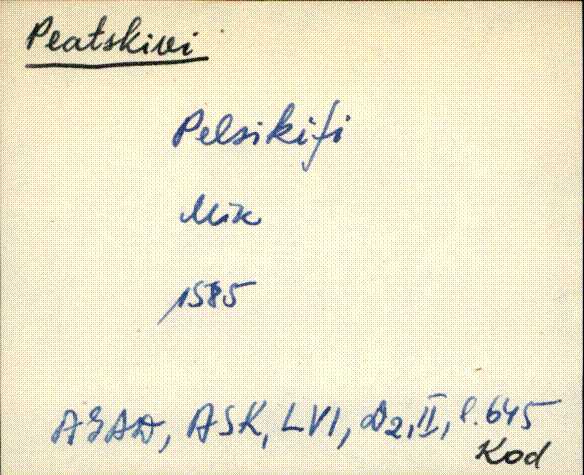 Peatskivi
Pelsikifi
Mik
1585
AGAD, ASK, LVI, D2, II, l. 645
Kod